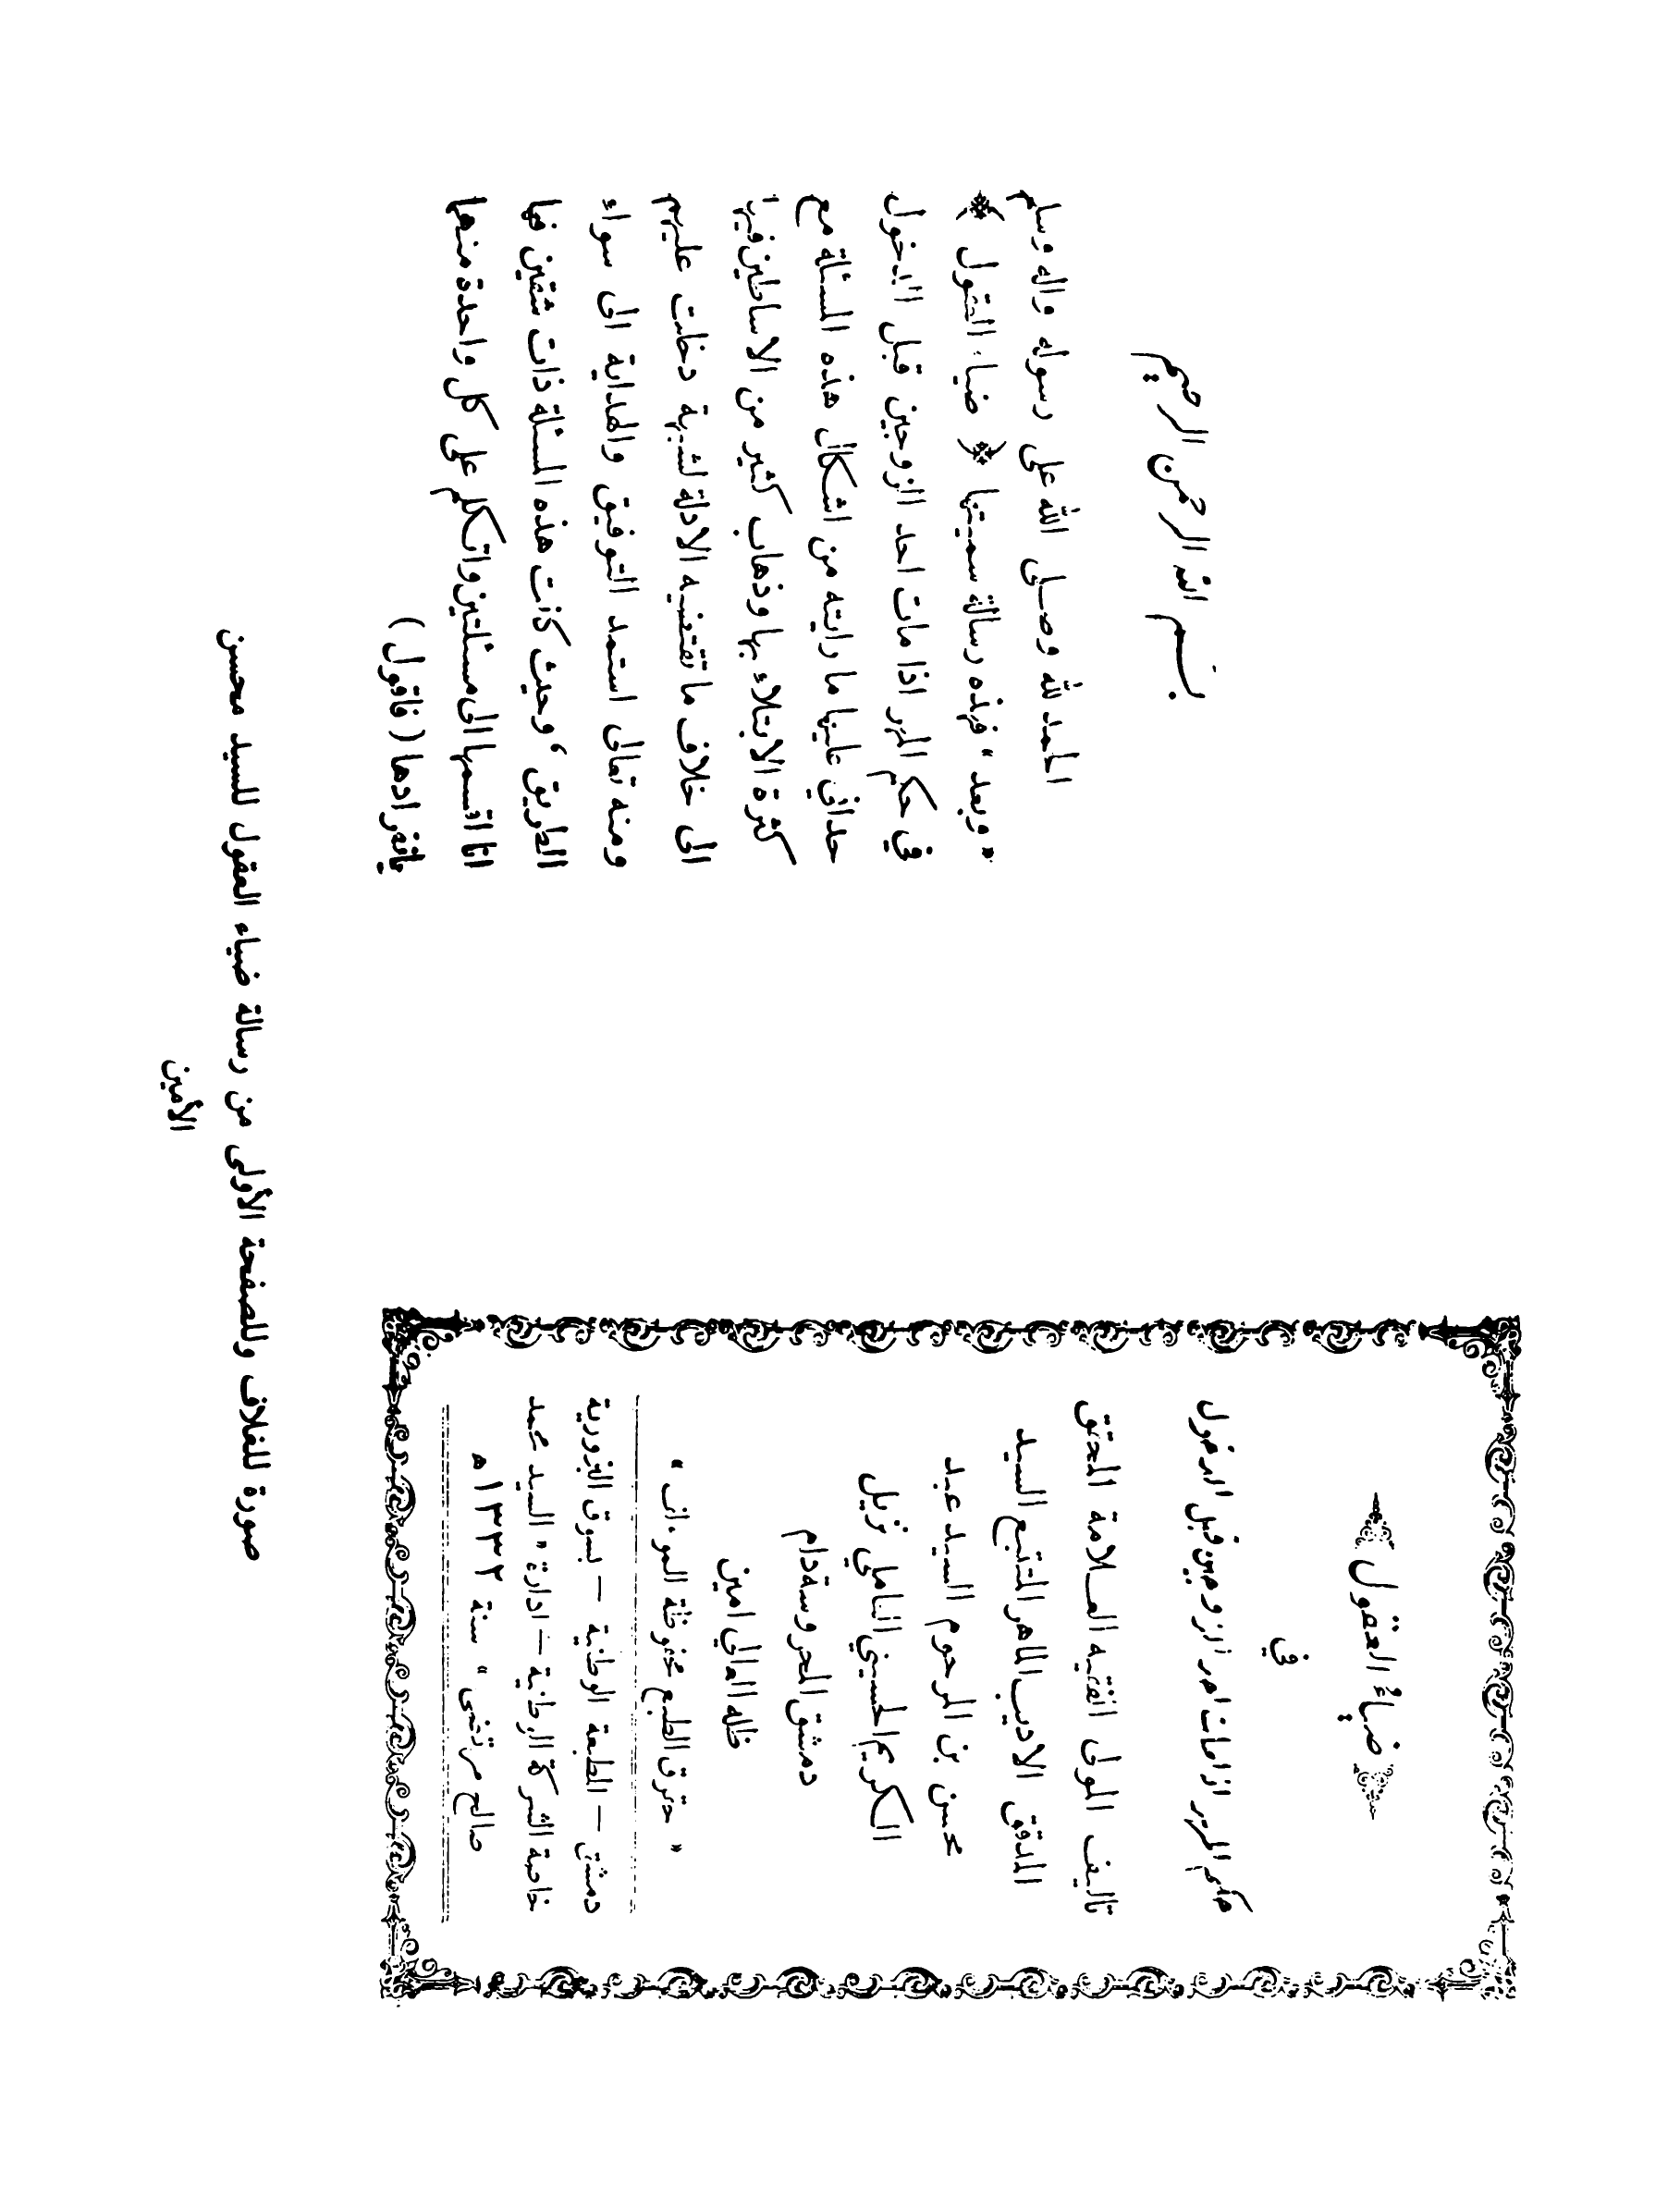 ضياءُ العقول
في
حكم المهر اذا مات احد الزوجين قبل الدخول
تاليف المولى الفقيه العلامة المحقق
المدقق الاديب الماهر المتتبع السيد
محسن بن المرحوم السيد عبد
الكريم الحسيني العاملي نزيل
دمشق المحروسة دام
ظله العالي امين
« حقوق الطبع محفوظة للمؤلف »
دمشق — المطبعة الوطنية — بسوق البزورية
خاصة الشركة الوطنية — ادارة « السيد محمد
صالح مرتضى » سنة ١٣٣٢ه
بسم الله الرحمن الرحيم
الحمد لله وصلى الله على رسوله واله وسلم
«وبعد» فهذه رسالة سميتها ﴿ ضياء العقول ﴾
في حكم المهر اذا مات احد الزوجين قبل الدخول
حداني عليها ما رايته من اشكال هذه المسئلة مع
كثرة الابتلاء بها وذهاب كثير من الاساطين فيها
الى خلاف ما تقتضيه الادلة لشبهة دخلت عليهم
ومنه تعالى استمد التوفيق والهداية الى سواء
الطريق ، وحيث كانت هذه المسئلة ذات شقين فها
انا اقسمها الى مسئلتين واتكلم على كل واحدة منهما
بانفرادها ( فاقول )
صورة للغلاف وللصفحة الأولى من رسالة ضياء العقول للسيد محسن
الأمين